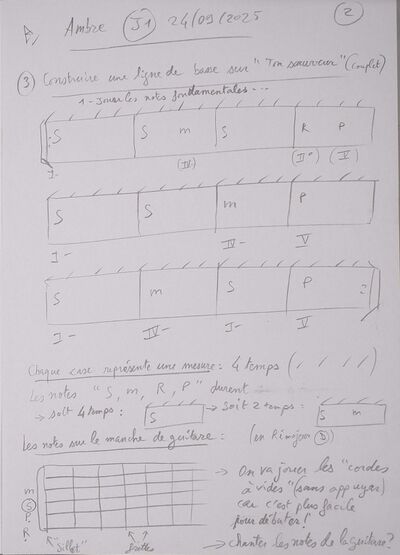 Ambre J1 24/09/2025 2
3 Construire une ligne de basse sur "Ton sauveur" (couplet)
1 - Jouer les notes fondamentales...
S S m S R P
I- (IV-) (II°) (V)
S S m P
I- IV- V
S m S P
I- IV- I- V
Chaque case représente une mesure : 4 temps ( / / / / )
Les notes "S, m, R, P" durent
→ soit 4 temps : S → Soit 2 temps : S m
Les notes sur le manche de guitare : (en Rimajeur)
→ On va jouer les "cordes
à vides" (sans appuyer)
car c'est plus facile
pour débuter !
m
S
P.
R
"Sillet" Frettes
→ chanter les notes de la guitare ?